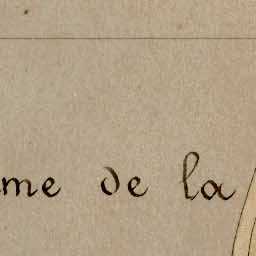 me de la